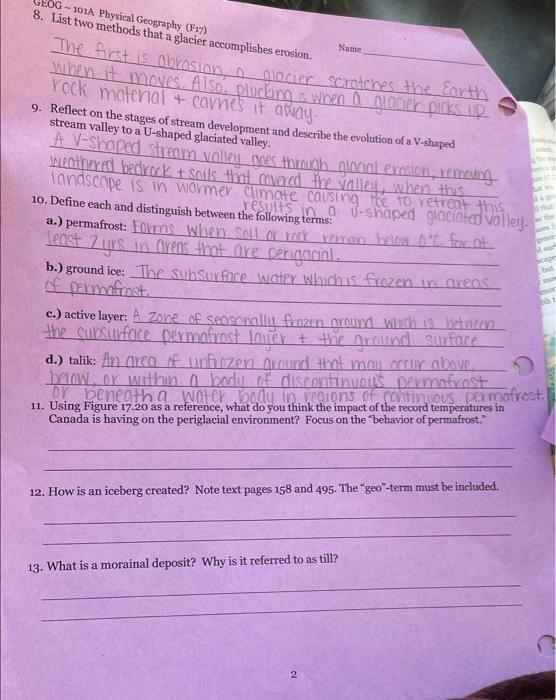 GEOG – 101A Physical Geography (F17)
Name
8. List two methods that a glacier accomplishes erosion.
The first is abrasion, a glacier scratches the Earth
when it moves. Also, plucking is when a glacier picks up
rock material + carries it away.
9. Reflect on the stages of stream development and describe the evolution of a V-shaped
stream valley to a U-shaped glaciated valley.
A V-shaped stream valley goes through glacial erosion, removing
weathered bedrock + soils that covered the valley, when this
landscape is in warmer climate causing ice to retreat this
results in a U-shaped glaciated valley.
10. Define each and distinguish between the following terms:
a.) permafrost: Forms when soil or rock remain below 0°C for at
least 2 yrs in areas that are perigacial.
b.) ground ice: The subsurface water which is frozen in areas
of permafrost.
c.) active layer: A zone of seasonally frozen ground which is between
the subsurface permafrost layer + the ground surface
d.) talik: An area of unfrozen ground that may occur above,
below, or within a body of discontinuous permafrost
or beneath a water body in regions of continuous permafrost.
11. Using Figure 17.20 as a reference, what do you think the impact of the record temperatures in
Canada is having on the periglacial environment? Focus on the "behavior of permafrost."
12. How is an iceberg created? Note text pages 158 and 495. The "geo"-term must be included.
13. What is a morainal deposit? Why is it referred to as till?
2